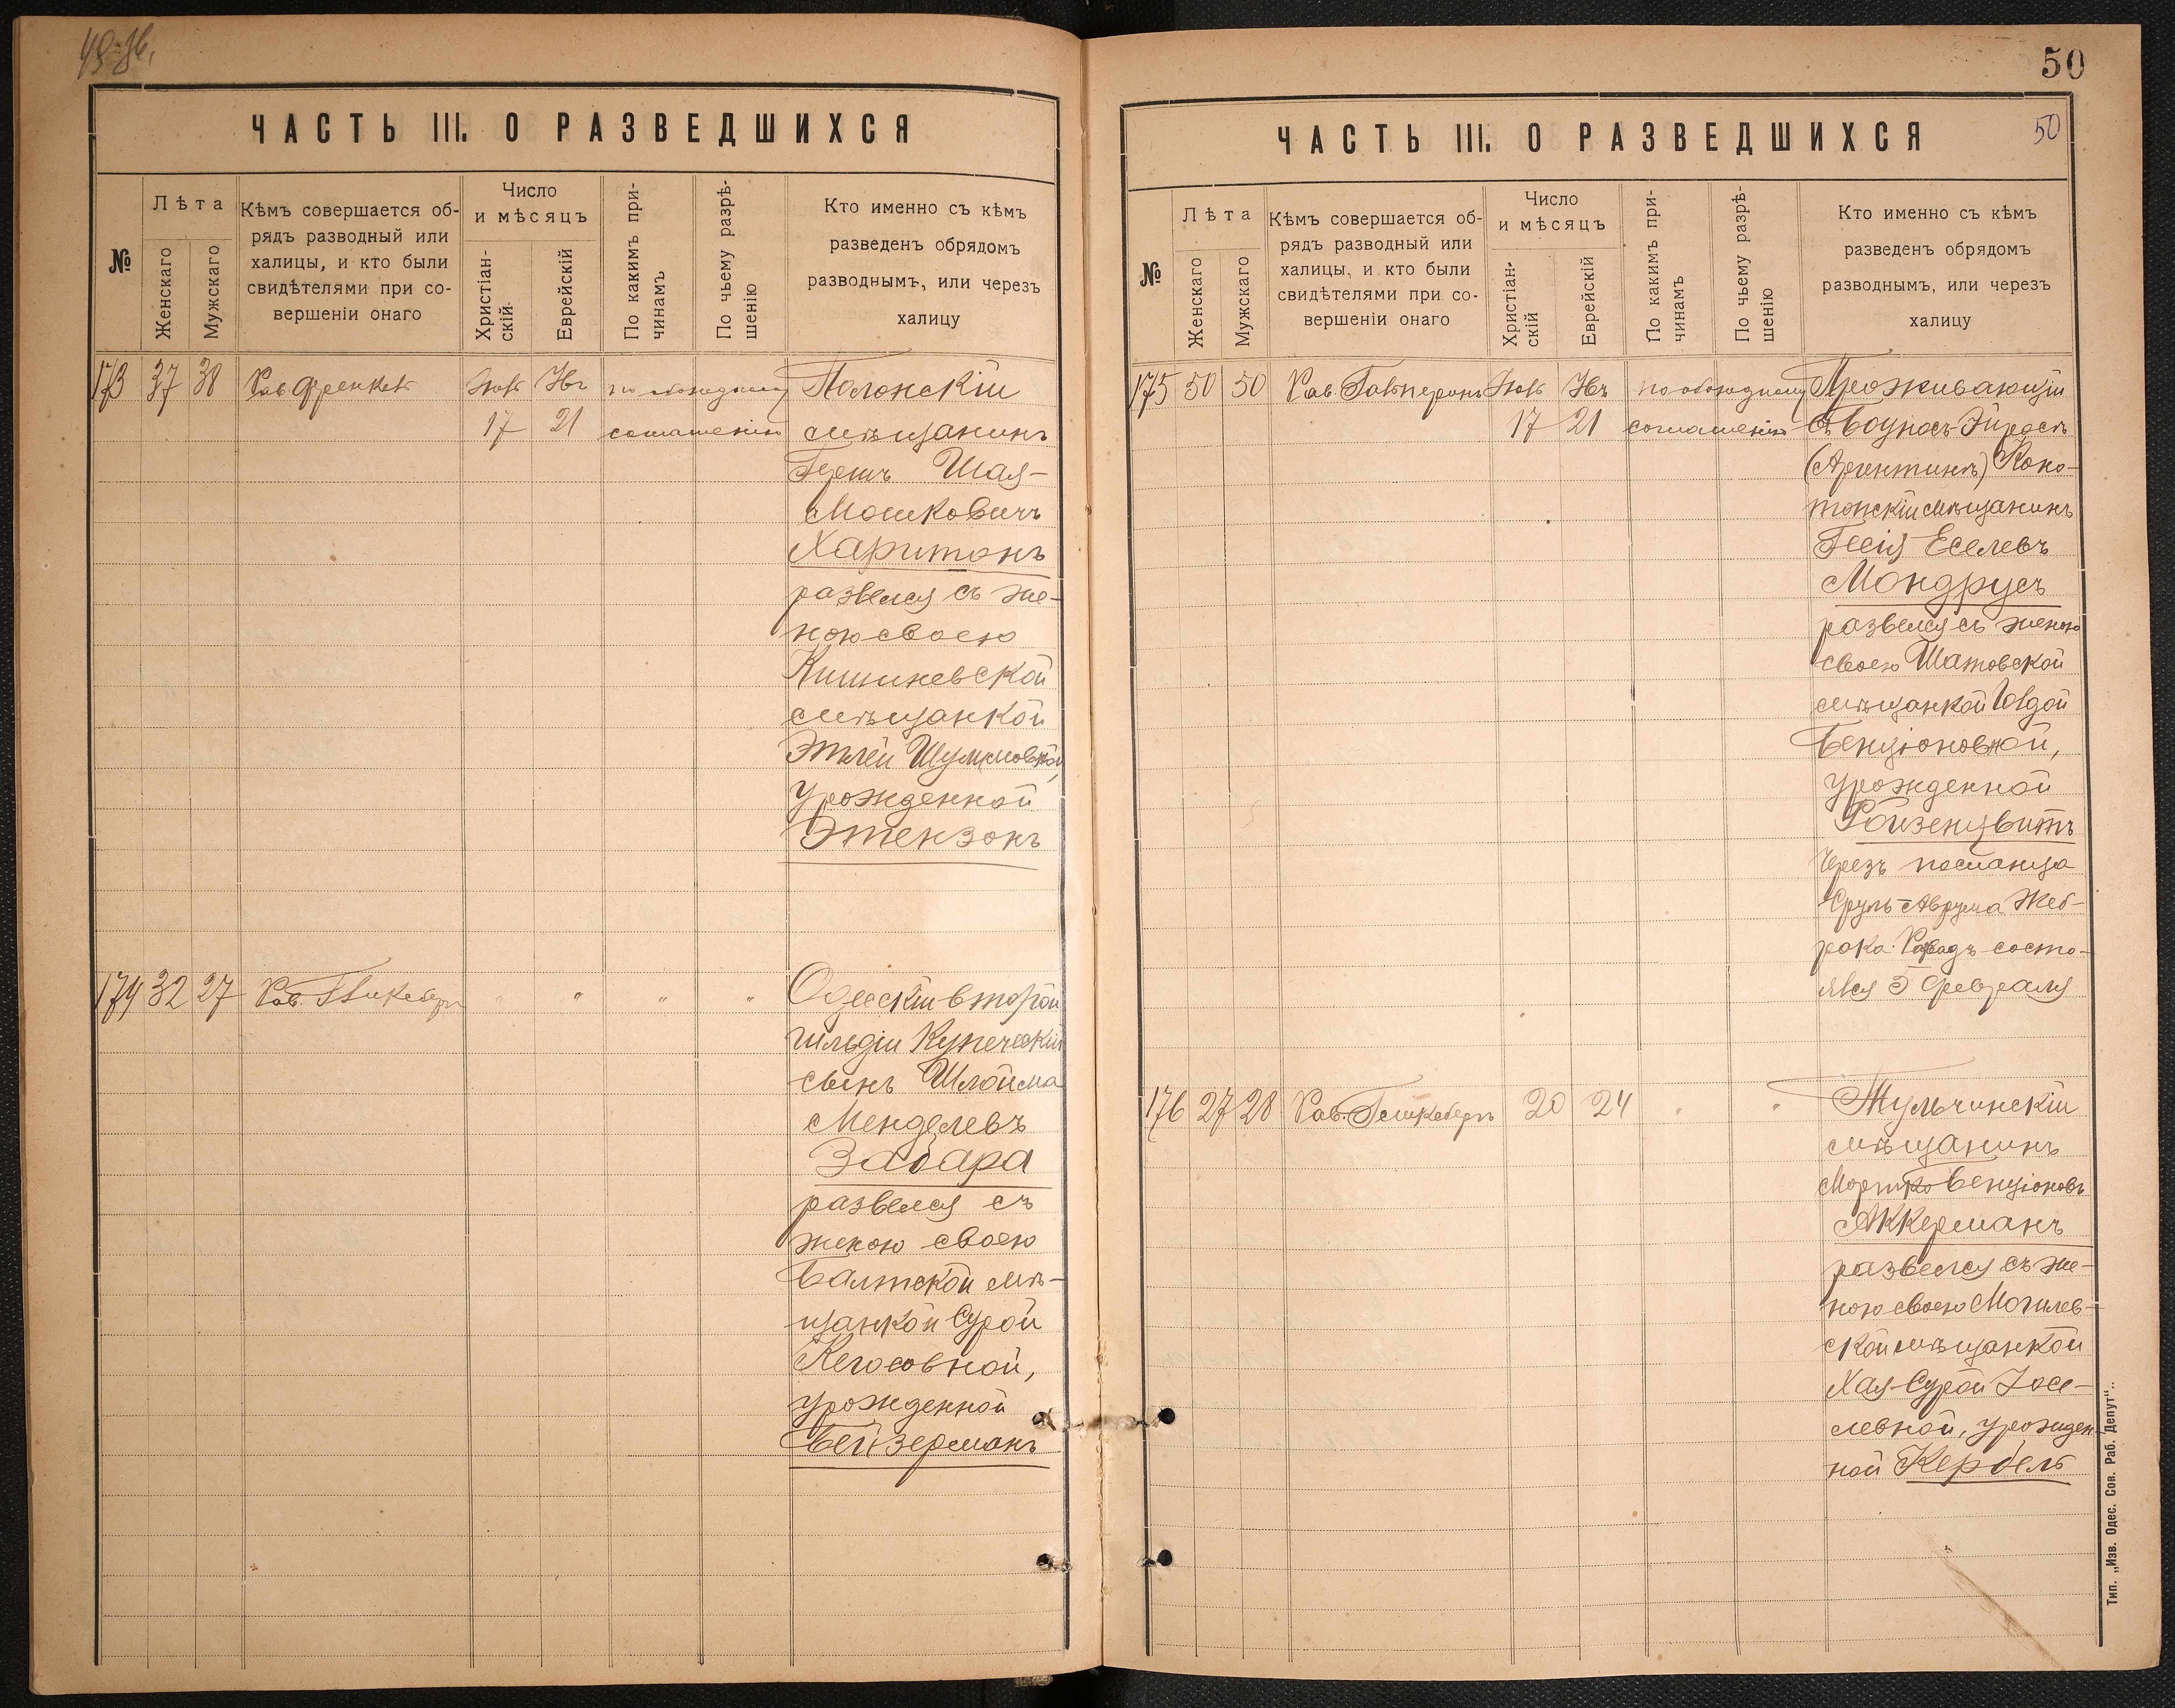 50
ЧАСТЬ III. О РАЗВЕДШИХСЯ
№
Лѣта
Женскаго
Мужскаго
Кѣмъ совершается об-
рядъ разводный или
халицы, и кто были
свидѣтелями при со-
вершеніи онаго
Число
и мѣсяцъ
Христіан-
скій
Еврейскій
По какимъ при-
чинамъ
По чьему разрѣ-
шенію
Кто именно съ кѣмъ
разведенъ обрядомъ
разводнымъ, или черезъ
халицу
173 37 38 Рав. Френкель по обоюдному Полонскій
17 21 соглашенію мѣщанинъ
Гершъ Шая-
Мошковичъ
Харитонъ
развелся съ же-
ною своею
Кишиневской
мѣщанкой
Этлей
урожденной
Этензонъ
174 32 27 Рав. " " " " Одесскій второй
гильдіи Купеческій
сынъ Шлойма
Менделевъ
Забара
развелся съ
женою своею
Балтской мѣ-
щанкой Сурой
урожденной
Бейзерманъ
ЧАСТЬ III. О РАЗВЕДШИХСЯ
50
№
Лѣта
Женскаго
Мужскаго
Кѣмъ совершается об-
рядъ разводный или
халицы, и кто были
свидѣтелями при со-
вершеніи онаго
Число
и мѣсяцъ
Христіан-
скій
Еврейскій
По какимъ при-
чинамъ
По чьему разрѣ-
шенію
Кто именно съ кѣмъ
разведенъ обрядомъ
разводнымъ, или черезъ
халицу
175 50 50 Рав. Гальперинъ по обоюдному Проживающій
17 21 соглашенію въ Боуносъ-Эйросѣ
(Аргентинѣ) Коно-
топскій мѣщанинъ
Еселевъ
Мондрусъ
развелся съ женою
своею Шатовской
мѣщанкой
Бенціоновной,
урожденной
Ройзенцвитъ
черезъ посланца
Сруль-Аврума Жеб-
рака. состо-
ялся 5 февраля
176 27 28 Рав. 20 24 " " Тульчинскій
мѣщанинъ
Мортко Бенціоновъ
Аккерманъ
развелся съ же-
ною своею Могилев-
ской мѣщанкой
Хая-Сурой Iосе-
левной, урожден-
ной Кербель
Тип. „Изв. Одес. Сов. Раб. Депут“..